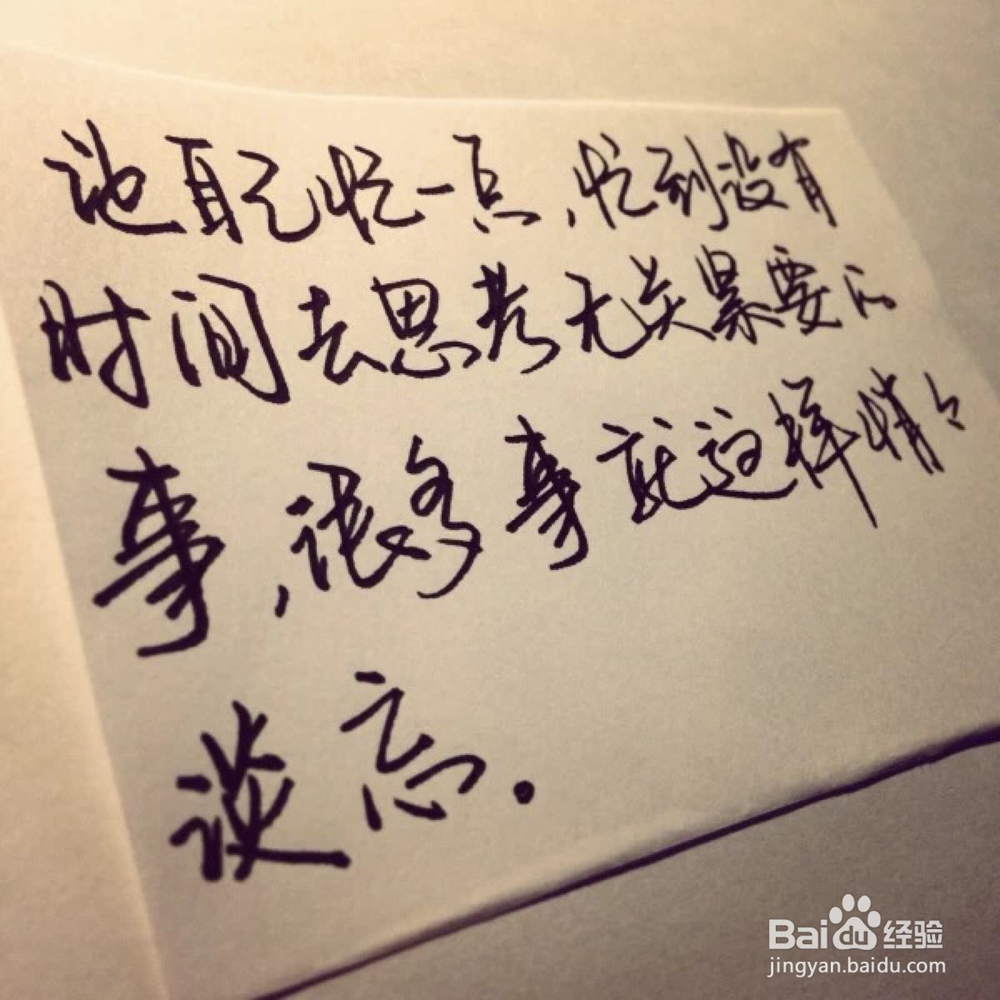 让自己忙一点，忙到没有
时间去思考无关紧要的
事，很多事就这样悄々
淡忘.
Bai du 经验
jingyan.baidu.com